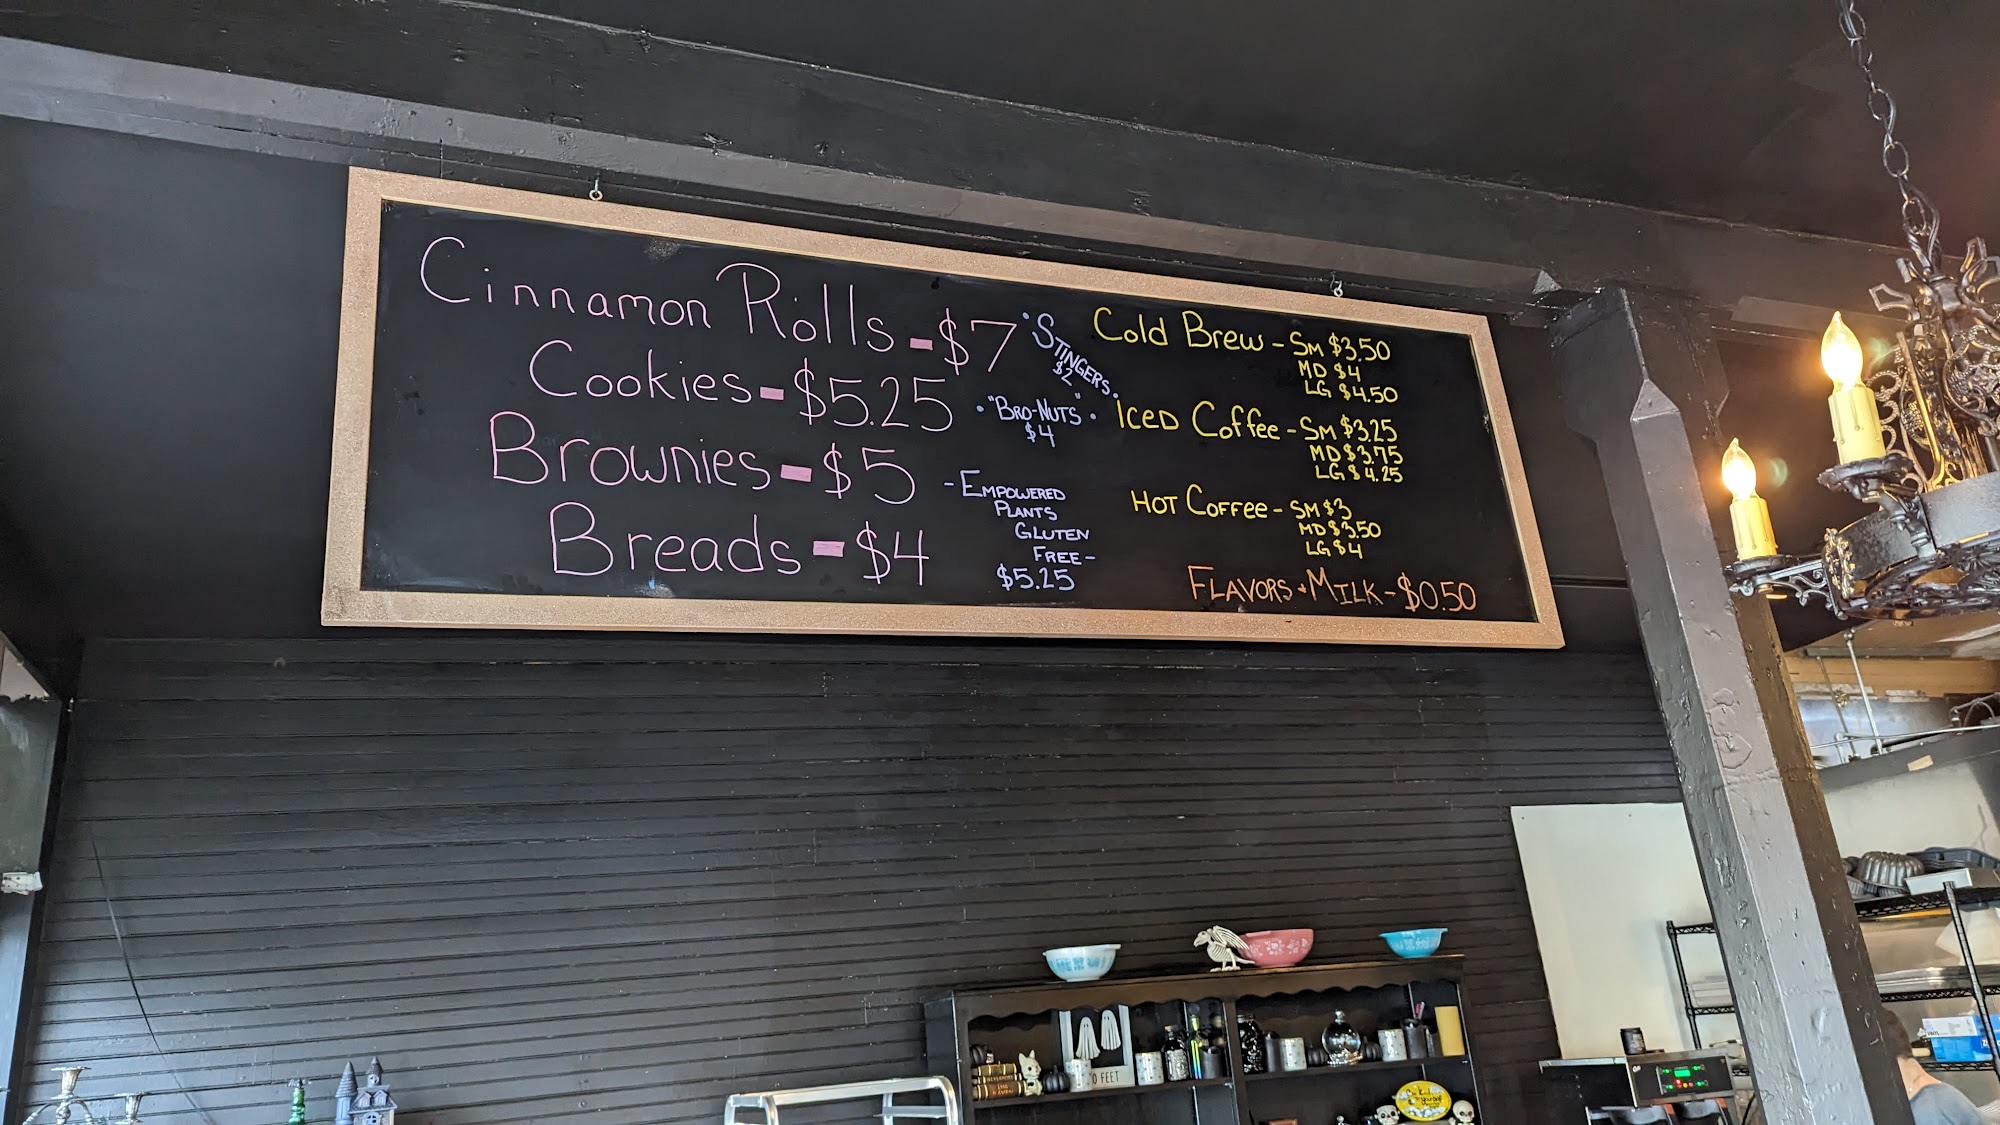 Cinnamon Rolls - $7
Cookies - $5.25
Brownies - $5
Breads - $4
• STINGERS •
$2
• "BRO-NUTS" •
$4
- EMPOWERED
PLANTS
GLUTEN
FREE -
$5.25
Cold Brew - SM $3.50
MD $4
LG $4.50
Iced Coffee - SM $3.25
MD $3.75
LG $4.25
HOT COFFEE - SM $3
MD $3.50
LG $4
FLAVORS + MILK - $0.50
FEET